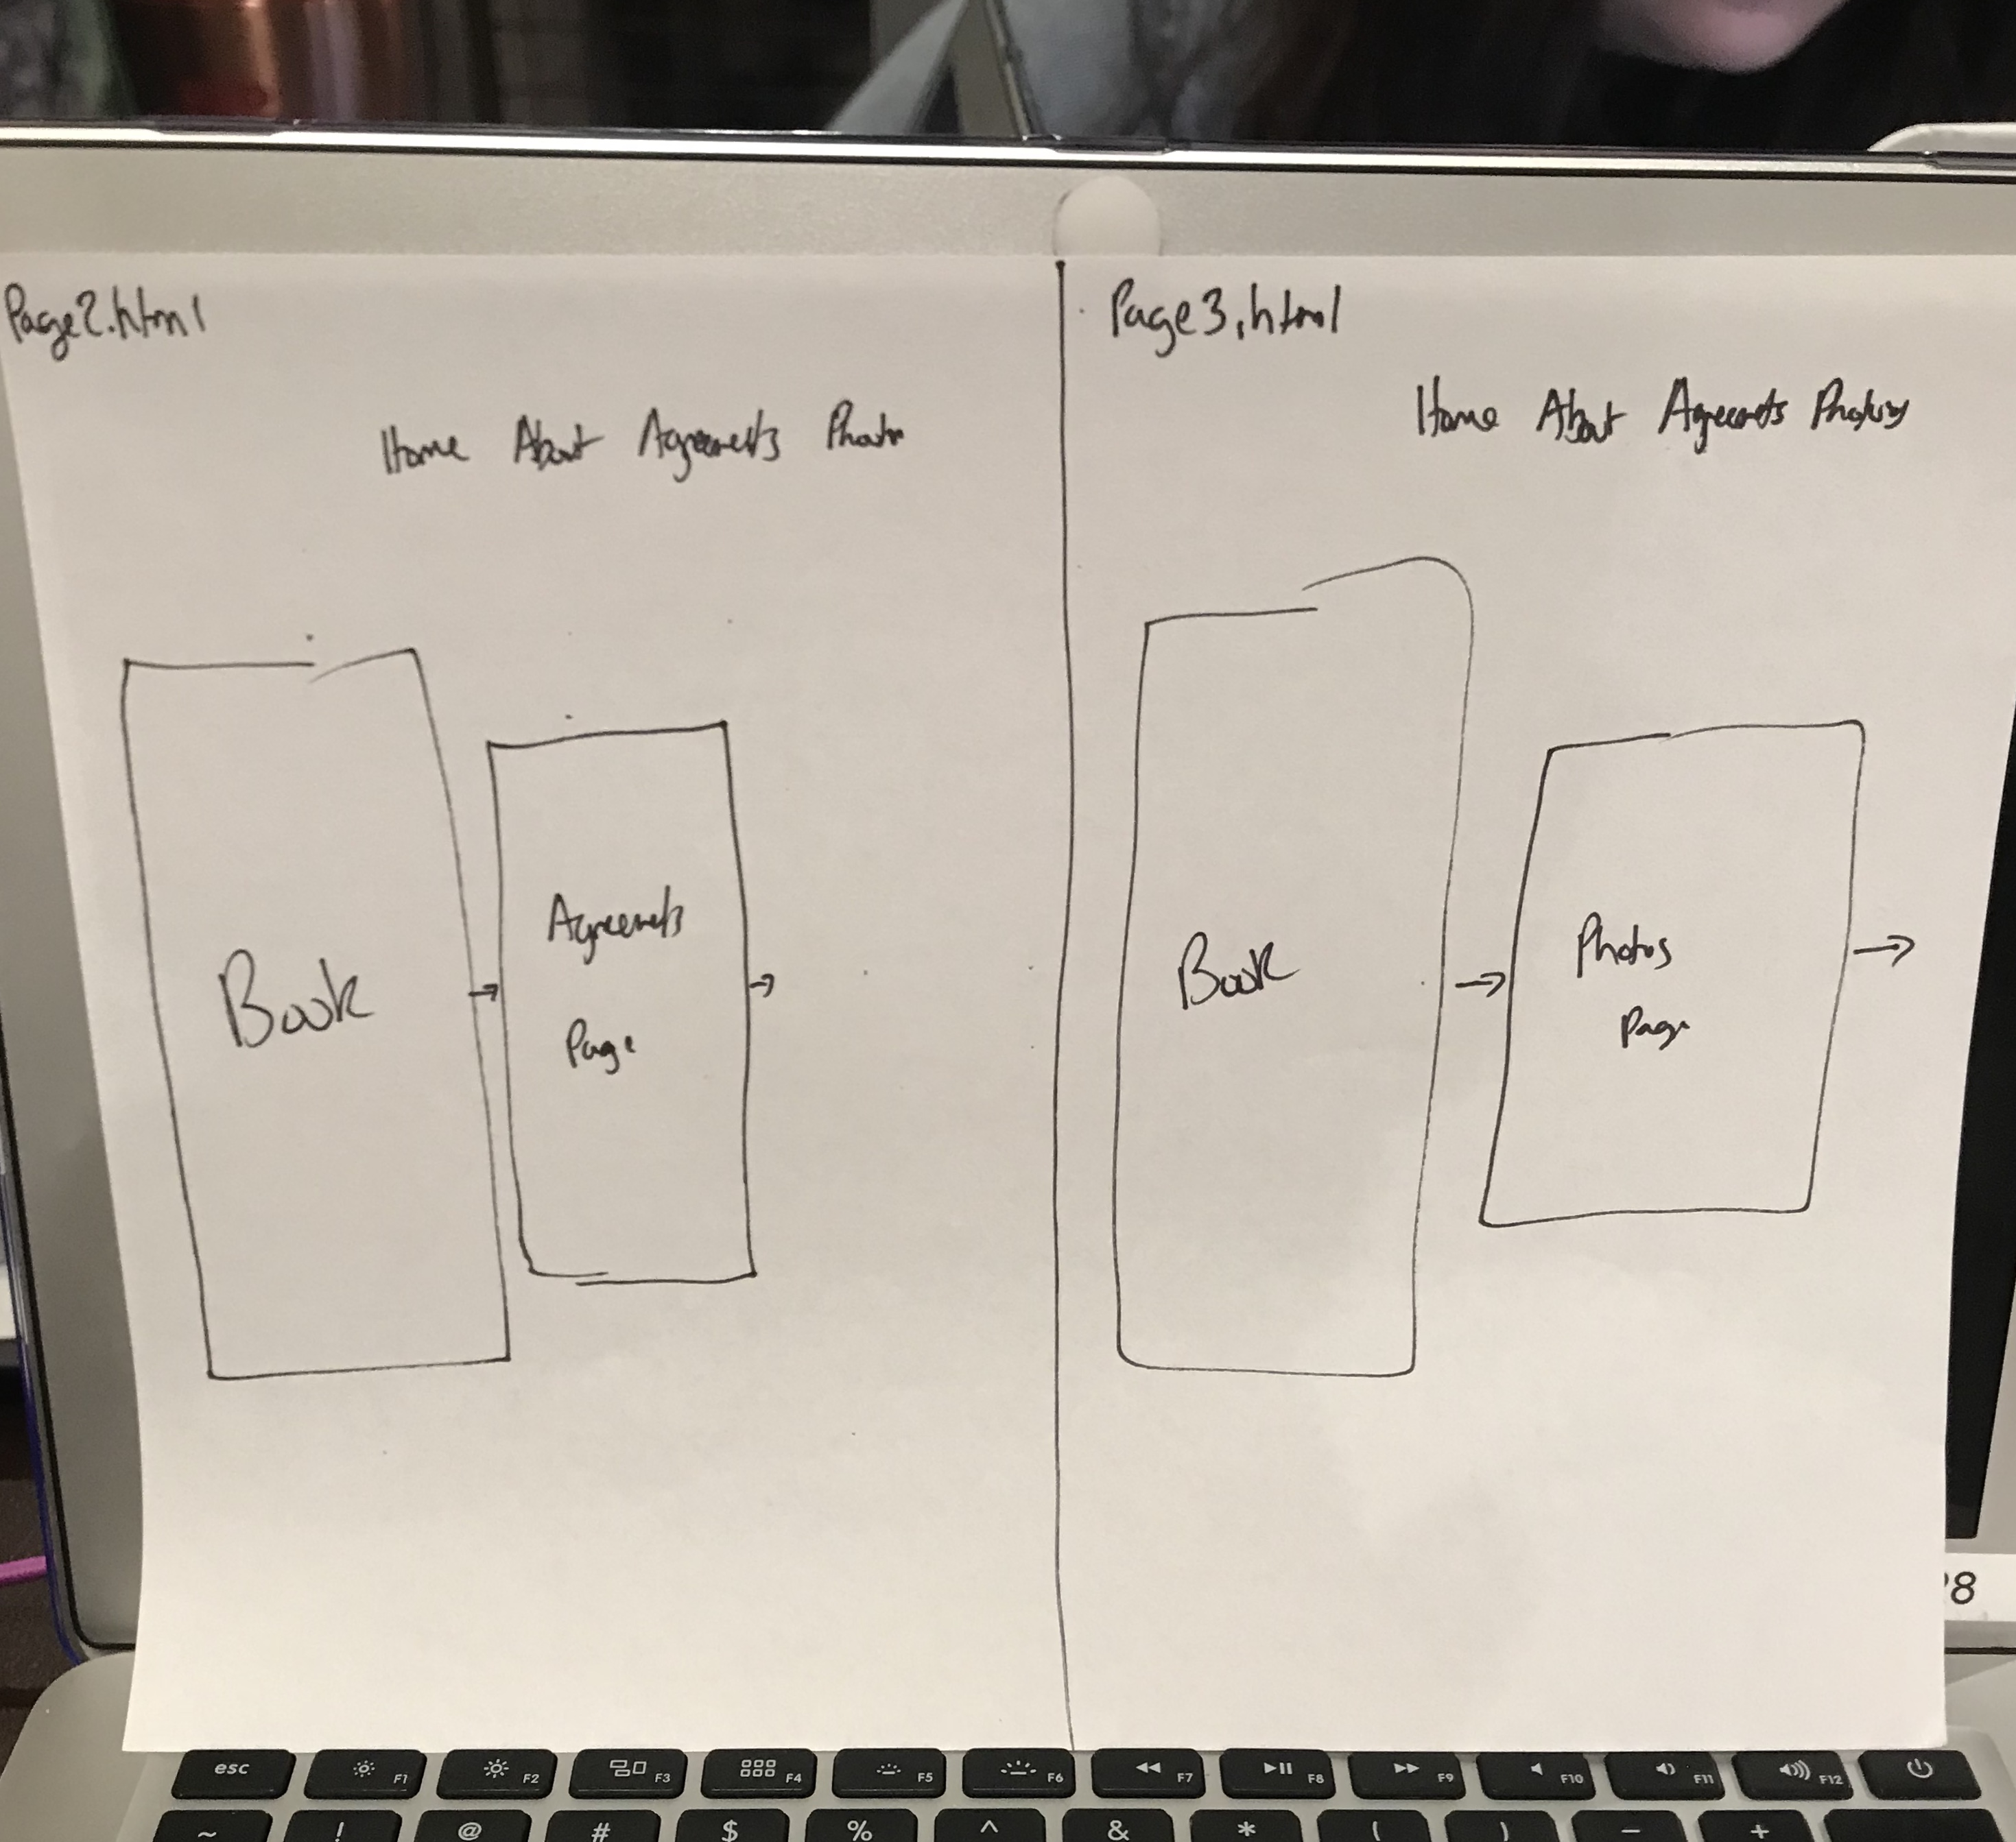 Page2.html
Home About Agreements Photos
Book
Agreements
Page
Page3.html
Home About Agreements Photos
Book
Photos
Page
8
esc F1 F2 F3 F4 F5 F6 F7 F8 F9 F10 F11 F12
~ ! @ # $ % ^ & * ( ) - +